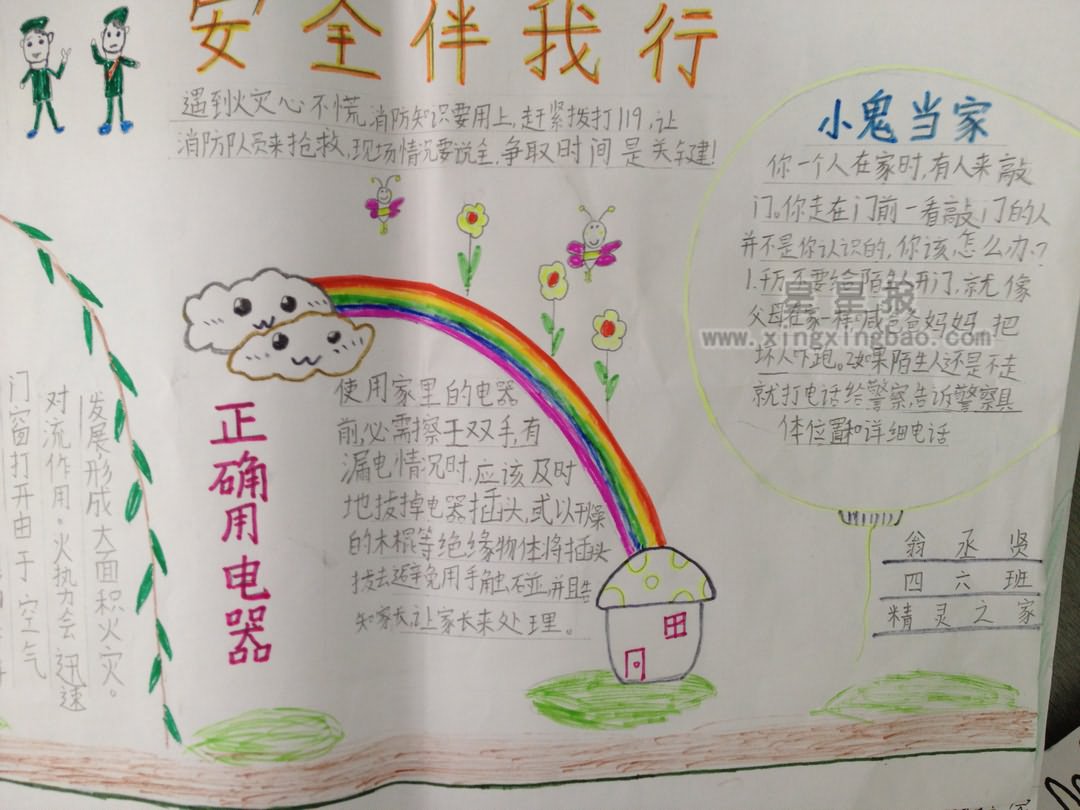 安全伴我行
遇到火灾心不慌,消防知识要用上,赶紧拨打119,让
消防队员来抢救,现场情况要说全,争取时间是关键!
小鬼当家
你一个人在家时,有人来敲
门。你走在门前一看敲门的人
并不是你认识的,你该怎么办?
1.千万不要给陌生人开门,就像
父母在家一样,喊爸爸妈妈把
坏人吓跑。2如果陌生人还是不走
就打电话给警察,告诉警察具
体位置和详细电话
星星报
www.xingxingbao.com
正确用电器
使用家里的电器
前,必需擦干双手,有
漏电情况时,应该及时
地拔掉电器插头,或以干燥
的木棍等绝缘物体将插头
拔去避免用手触碰,并且告
知家长,让家长来处理。
发展形成大面积火灾。
对流作用。火热力会迅速
门窗打开由于空气
翁丞贤
四六班
精灵之家